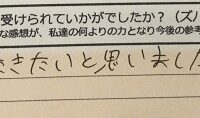 受けられていかがでしたか？（ズバ
な感想が、私達の何よりの力となり今後の参考
きたいと思いました